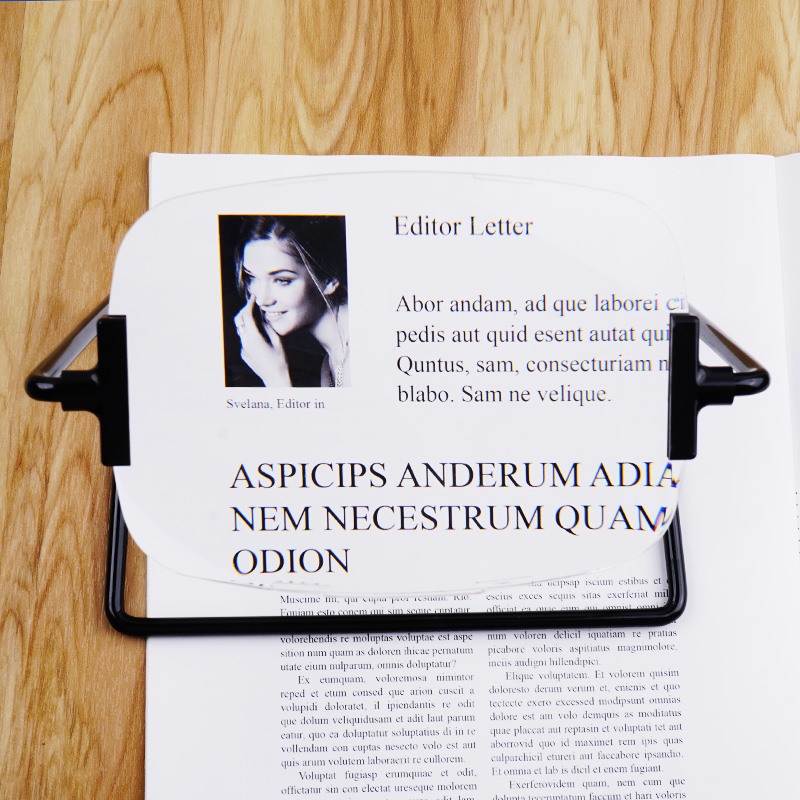 Editor Letter
Abor andam, ad que laborei
pedis aut quid esent autat qui
Quntus, sam, consecturiam n
blabo. Sam ne velique.
Svelana, Editor in
ASPICIPS ANDERUM ADIA
NEM NECESTRUM QUAM
ODION
Muscime mi, qui culpa por restiam. Rio.
Equiam esto conem qui sim seque cuptatur
volorehendis re moluptas voluptae est aspe
sition num quam as doloren ihicae pernatum
utate eium nulparum, omnis doluptatur?
Ex eumquam, voloremosa nimintor
reped et etum consed que arion cuscit a
volupidi doloratet, il ipiendantis re odit
que dolum veliquidusam et adit laut parum
eatur, quo ea doluptatur soluptatius di in re
vollendam con cuptas nesecto volo est aut
quis arum volutem laboraerit re cullorem.
Voluptat fugiasp erumquiae et odit,
offictatur sin con electat ureseque molorem
ucipsap iscium estibus et
escius exces sequis sitas exerferiat mil
officiat ea quae eum qui omnist omni
num voloren delicil iquatiam re pratias
picabore voloris aspitiatus magnimolore,
inciis audigni hillendipici.
Elique voluptatem. Et volorem quisim
doloresto derum verum et, enienis et quo
tectecte exero excessed modipsunt omnias
dolore est am volo demquis as moditatus
quae placcat aut reptasin et voluptati tet aut
aborrovid quo id maximet rem ipis quas
culparchicil etureri aut faccabore ipsandio.
Et omnia et lab is dicil et enem fugiant.
Exerferovidem quam, nem cum que
dolupta tectotatum faccum et hari voloris